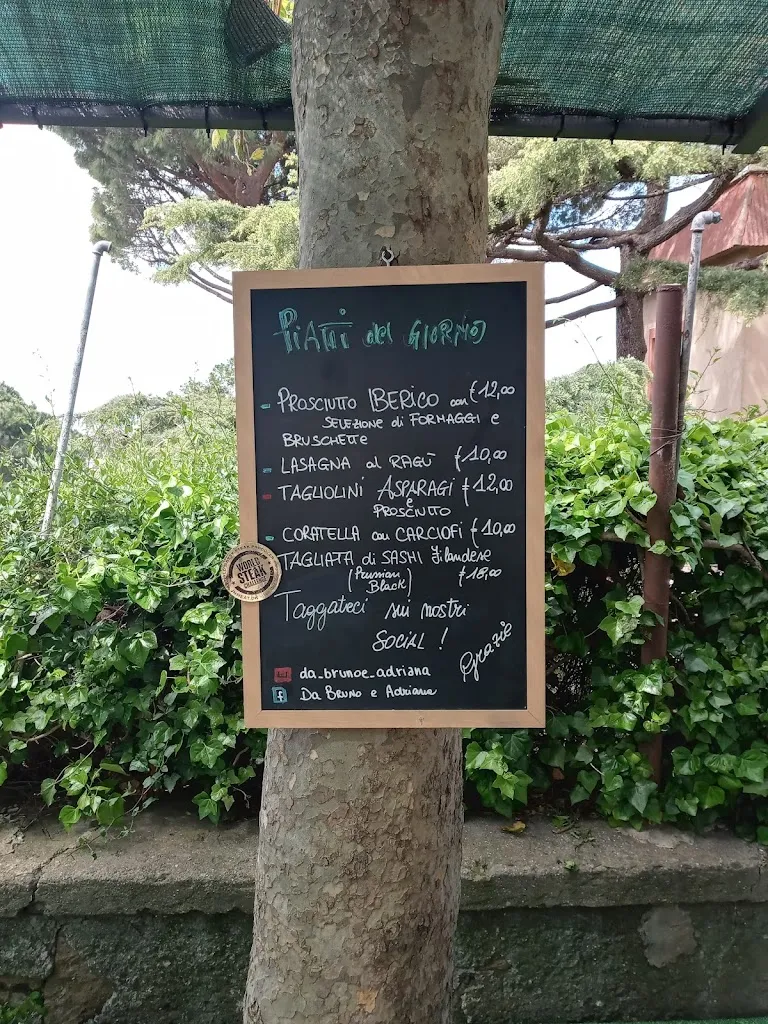 PiATTi del GIORNO
- PROSCIUTTO IBERICO con €12,00
SELEZIONE di FORMAGGI e
BRUSCHETTE
- LASAGNA al RAGÙ €10,00
- TAGLIOLINI ASPARAGI €12,00
e
PROSCIUTTO
- CORATELLA con CARCIOFI €10,00
TAGLIATA di SASHI Filandese
(Purssian Black) €18,00
WORLD
STEAK
CHALLENGE
Taggateci sui nostri
SOCIAL !
Grazie
da_brunoe_adriana
DA BRUNO e Adriana